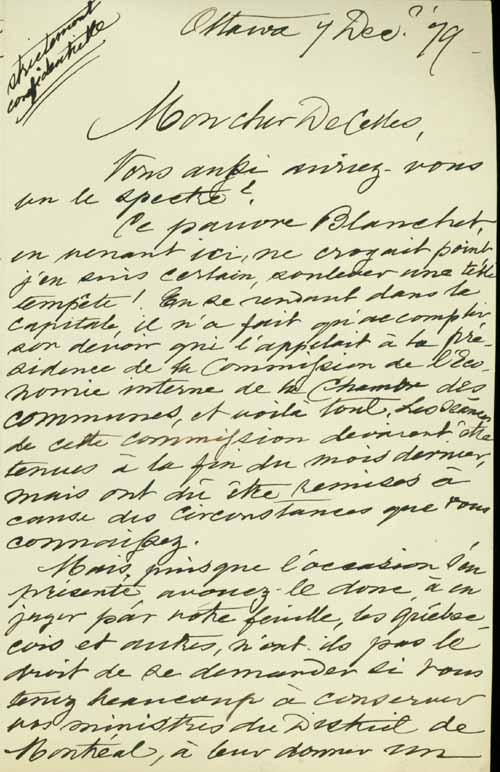 strictement
confidentielle
Ottawa 7 Dec. '79.
Mon cher DeCelles,
Vous aussi auriez-vous
vu le spectre?
Ce pauvre Blanchet,
en venant ici, ne croyait point
j'en suis certain, soulever une telle
tempête! En se rendant dans la
capitale, il n'a fait qu'accomplir
son devoir qui l'appelait à la pré
sidence de la Commission de l'Eco
nomie interne de la Chambre des
communes, et voilà tout. Les séances
de cette commission devaient être
tenues à la fin du mois dernier,
mais ont dû être remises à
cause des circonstances que vous
connaissez.
Mais, puisque l'occasion s'en
présente, avouez-le donc, à en
juger par votre feuille, les Québec
cois et autres, n'ont-ils pas le
droit de se demander si vous
tenez beaucoup à conserver
vos ministres du District de
Montréal, à leur donner un